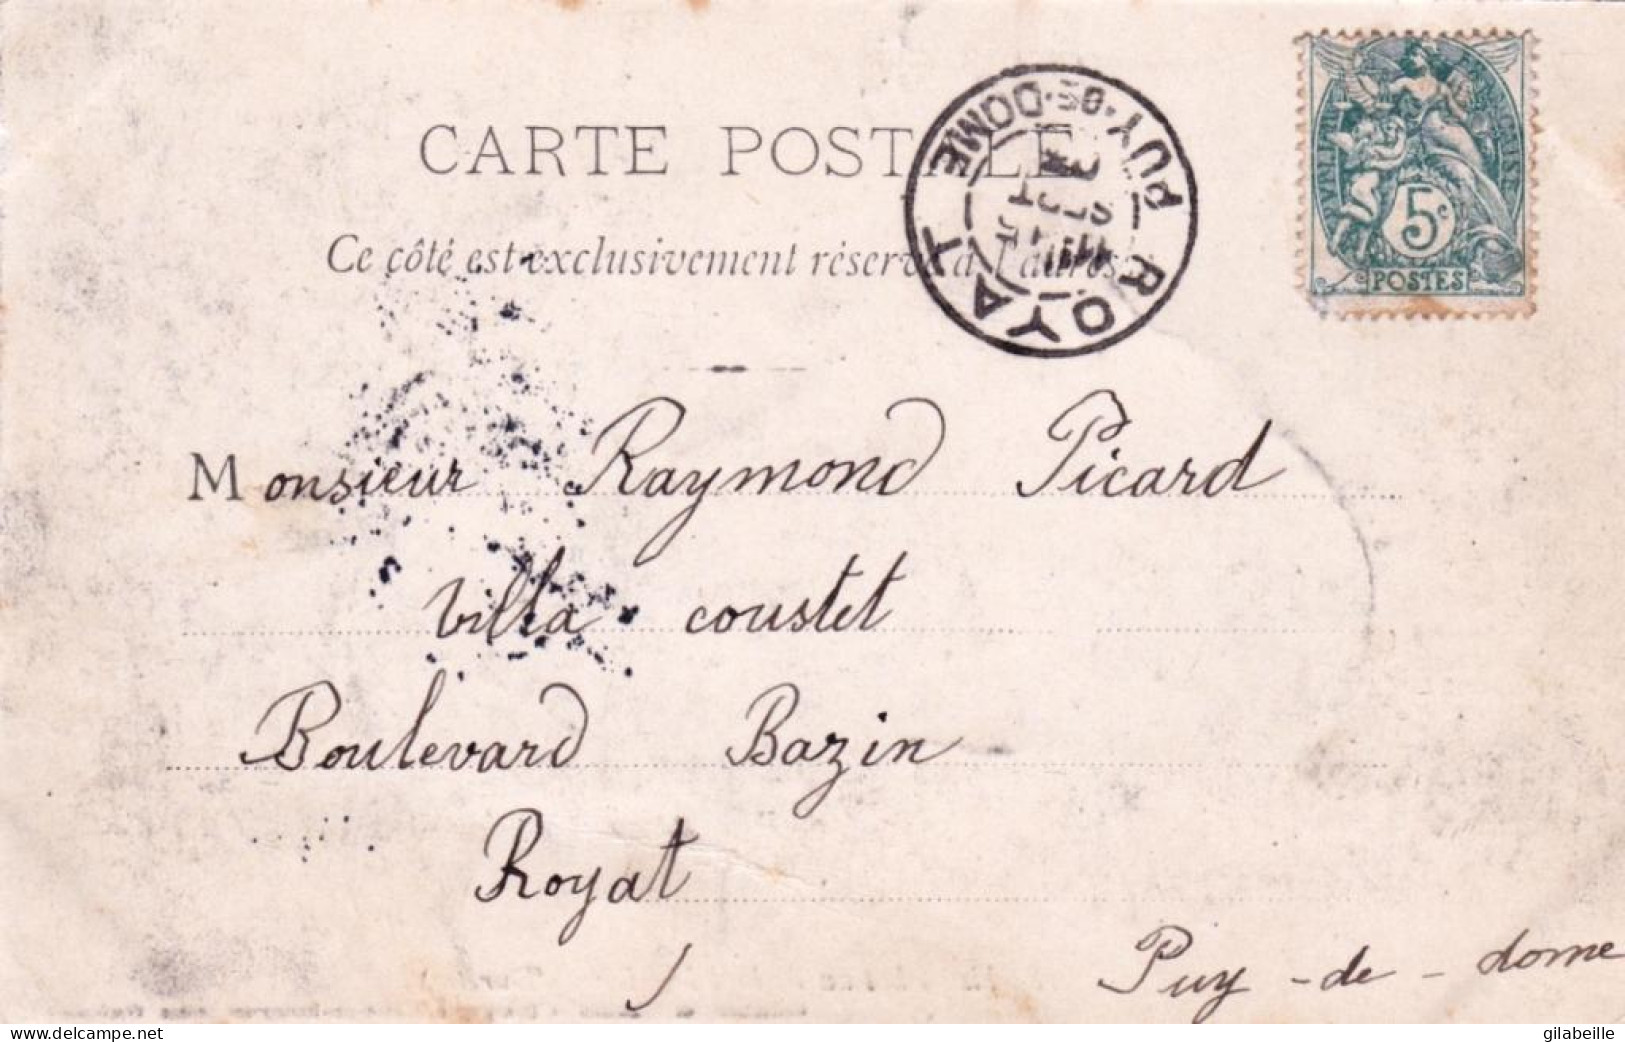 CARTE POSTALE
Ce côté est exclusivement réservé à l'adresse
ROYAT
PUY-DE-DOME
SEPT
5c
POSTES
Monsieur Raymond Picard
Villa coustet
Boulevard Bazin
Royat
Puy-de-dome
www.delcampe.net
gilabeille